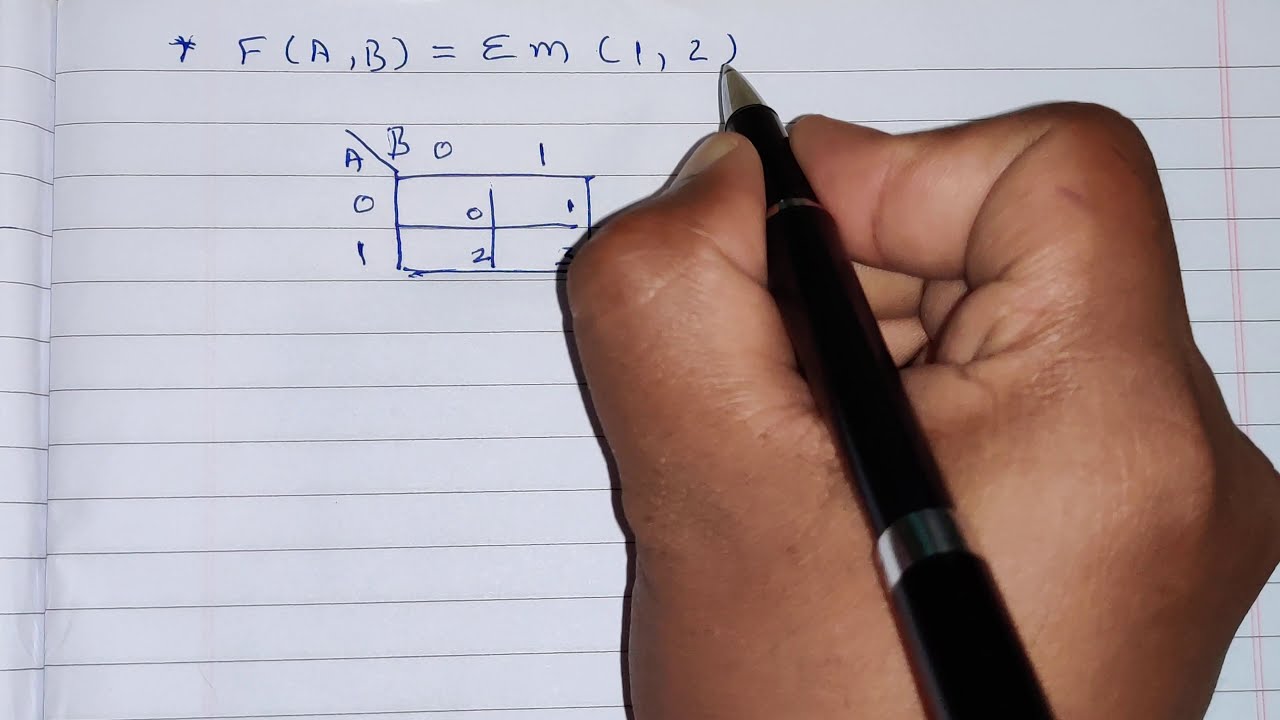 * F(A,B) = Σm(1,2)
A B 0 1
0 0 1
1 2